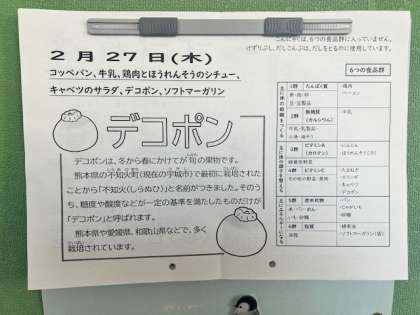 こんにゃくは、6つの食品群に入っていません。
けずりぶし、だしこんぶは、だしをとるのに使用しています。
2月27日(木)
コッペパン、牛乳、鶏肉とほうれんそうのシチュー、
キャベツのサラダ、デコポン、ソフトマーガリン
デコポン
デコポンは、冬から春にかけてが旬の果物です。
熊本県の不知火町(現在の宇城市)で最初に栽培された
ことから「不知火(しらぬひ)」と名前がつきました。そのう
ち、糖度や酸度などが一定の基準を満たしたものだけが
「デコポン」と呼ばれます。
熊本県や愛媛県、和歌山県などで、多く
栽培されています。
6つの食品群
1群 たんぱく質
・鶏肉
・ベーコン
魚・肉・卵
豆・豆製品
2群 無機質
(カルシウム)
・牛乳
牛乳・乳製品
小魚・海そう
3群 ビタミンA
(カロテン)
・にんじん
・ほうれんそう
緑黄色野菜
4群 ビタミンC
その他の野菜・果物
・たまねぎ
・キャベツ
・デコポン
5群 炭水化物
米・パン・めん
いも・砂糖
・パン
・じゃがいも
・砂糖
6群 脂質
油脂
・ソフトマーガリン